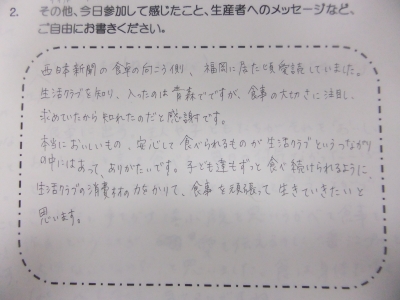 2. その他、今日参加して感じたこと、生産者へのメッセージなど、
ご自由にお書きください。
西日本新聞の食卓の向こう側、福岡に居た頃愛読していました。
生活クラブを知り、入ったのは青森でですが、食事の大切さに注目し、
求めていたから知れたのだと感謝です。
本当においしいもの、安心して食べられるものが生活クラブというつながり
の中にはあって、ありがたいです。子ども達もずっと食べ続けられるように、
生活クラブの消費材の力をかりて、食事を頑張って生きていきたいと
思います。